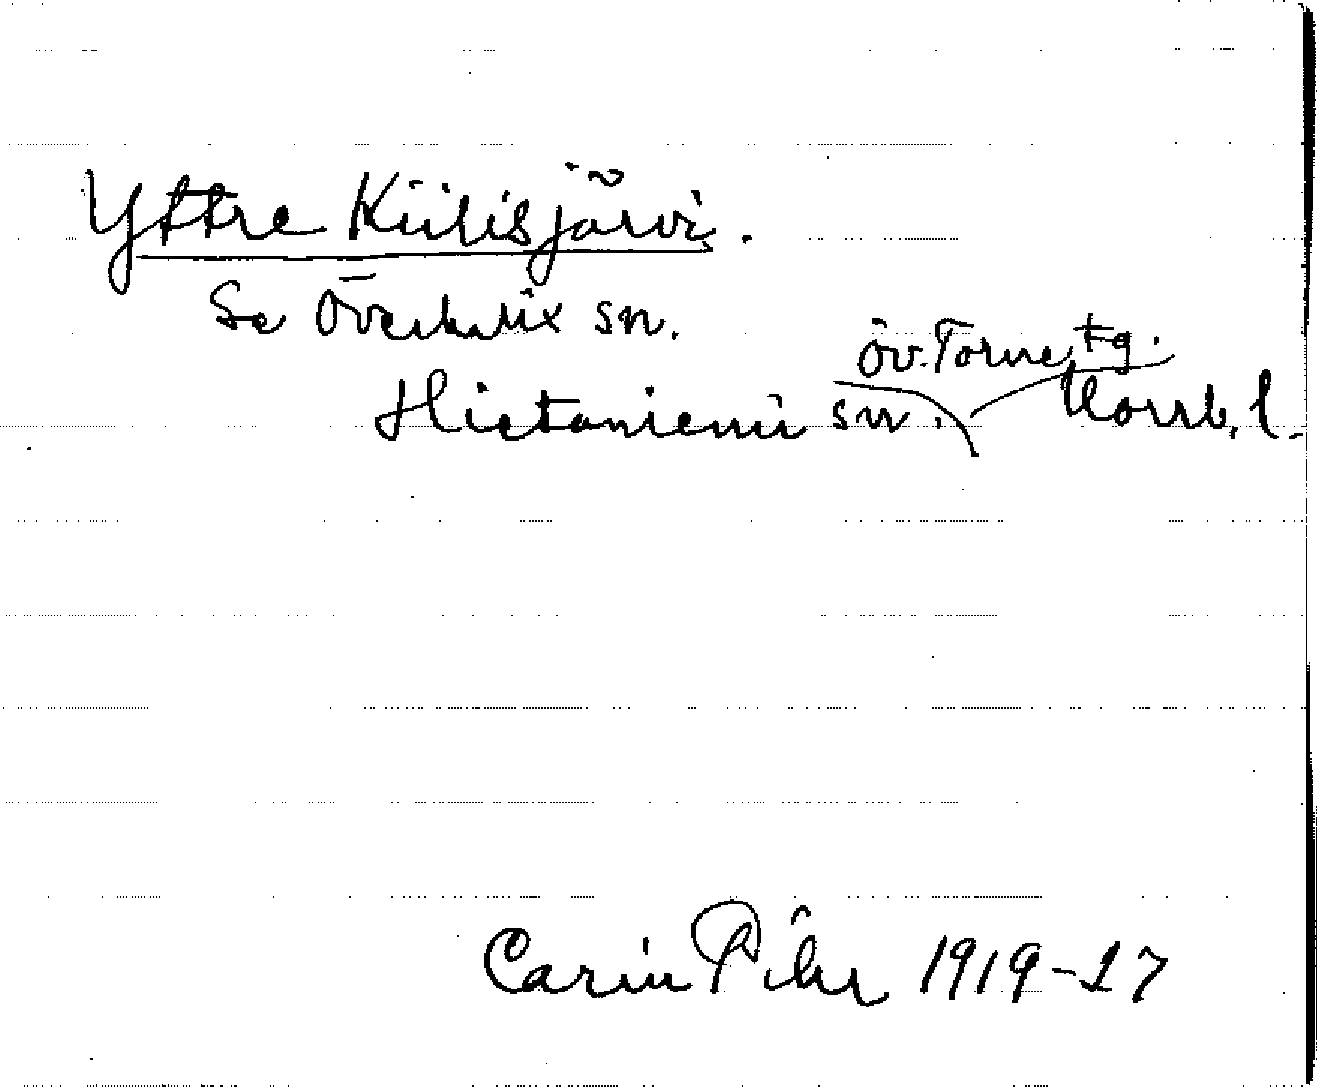 Yttre Kiilisjärvi.
Se Överkalix sn.
Hietaniemi sn. Öv. Torne tg. Norrb. l.
Carin Pihl 1919-27